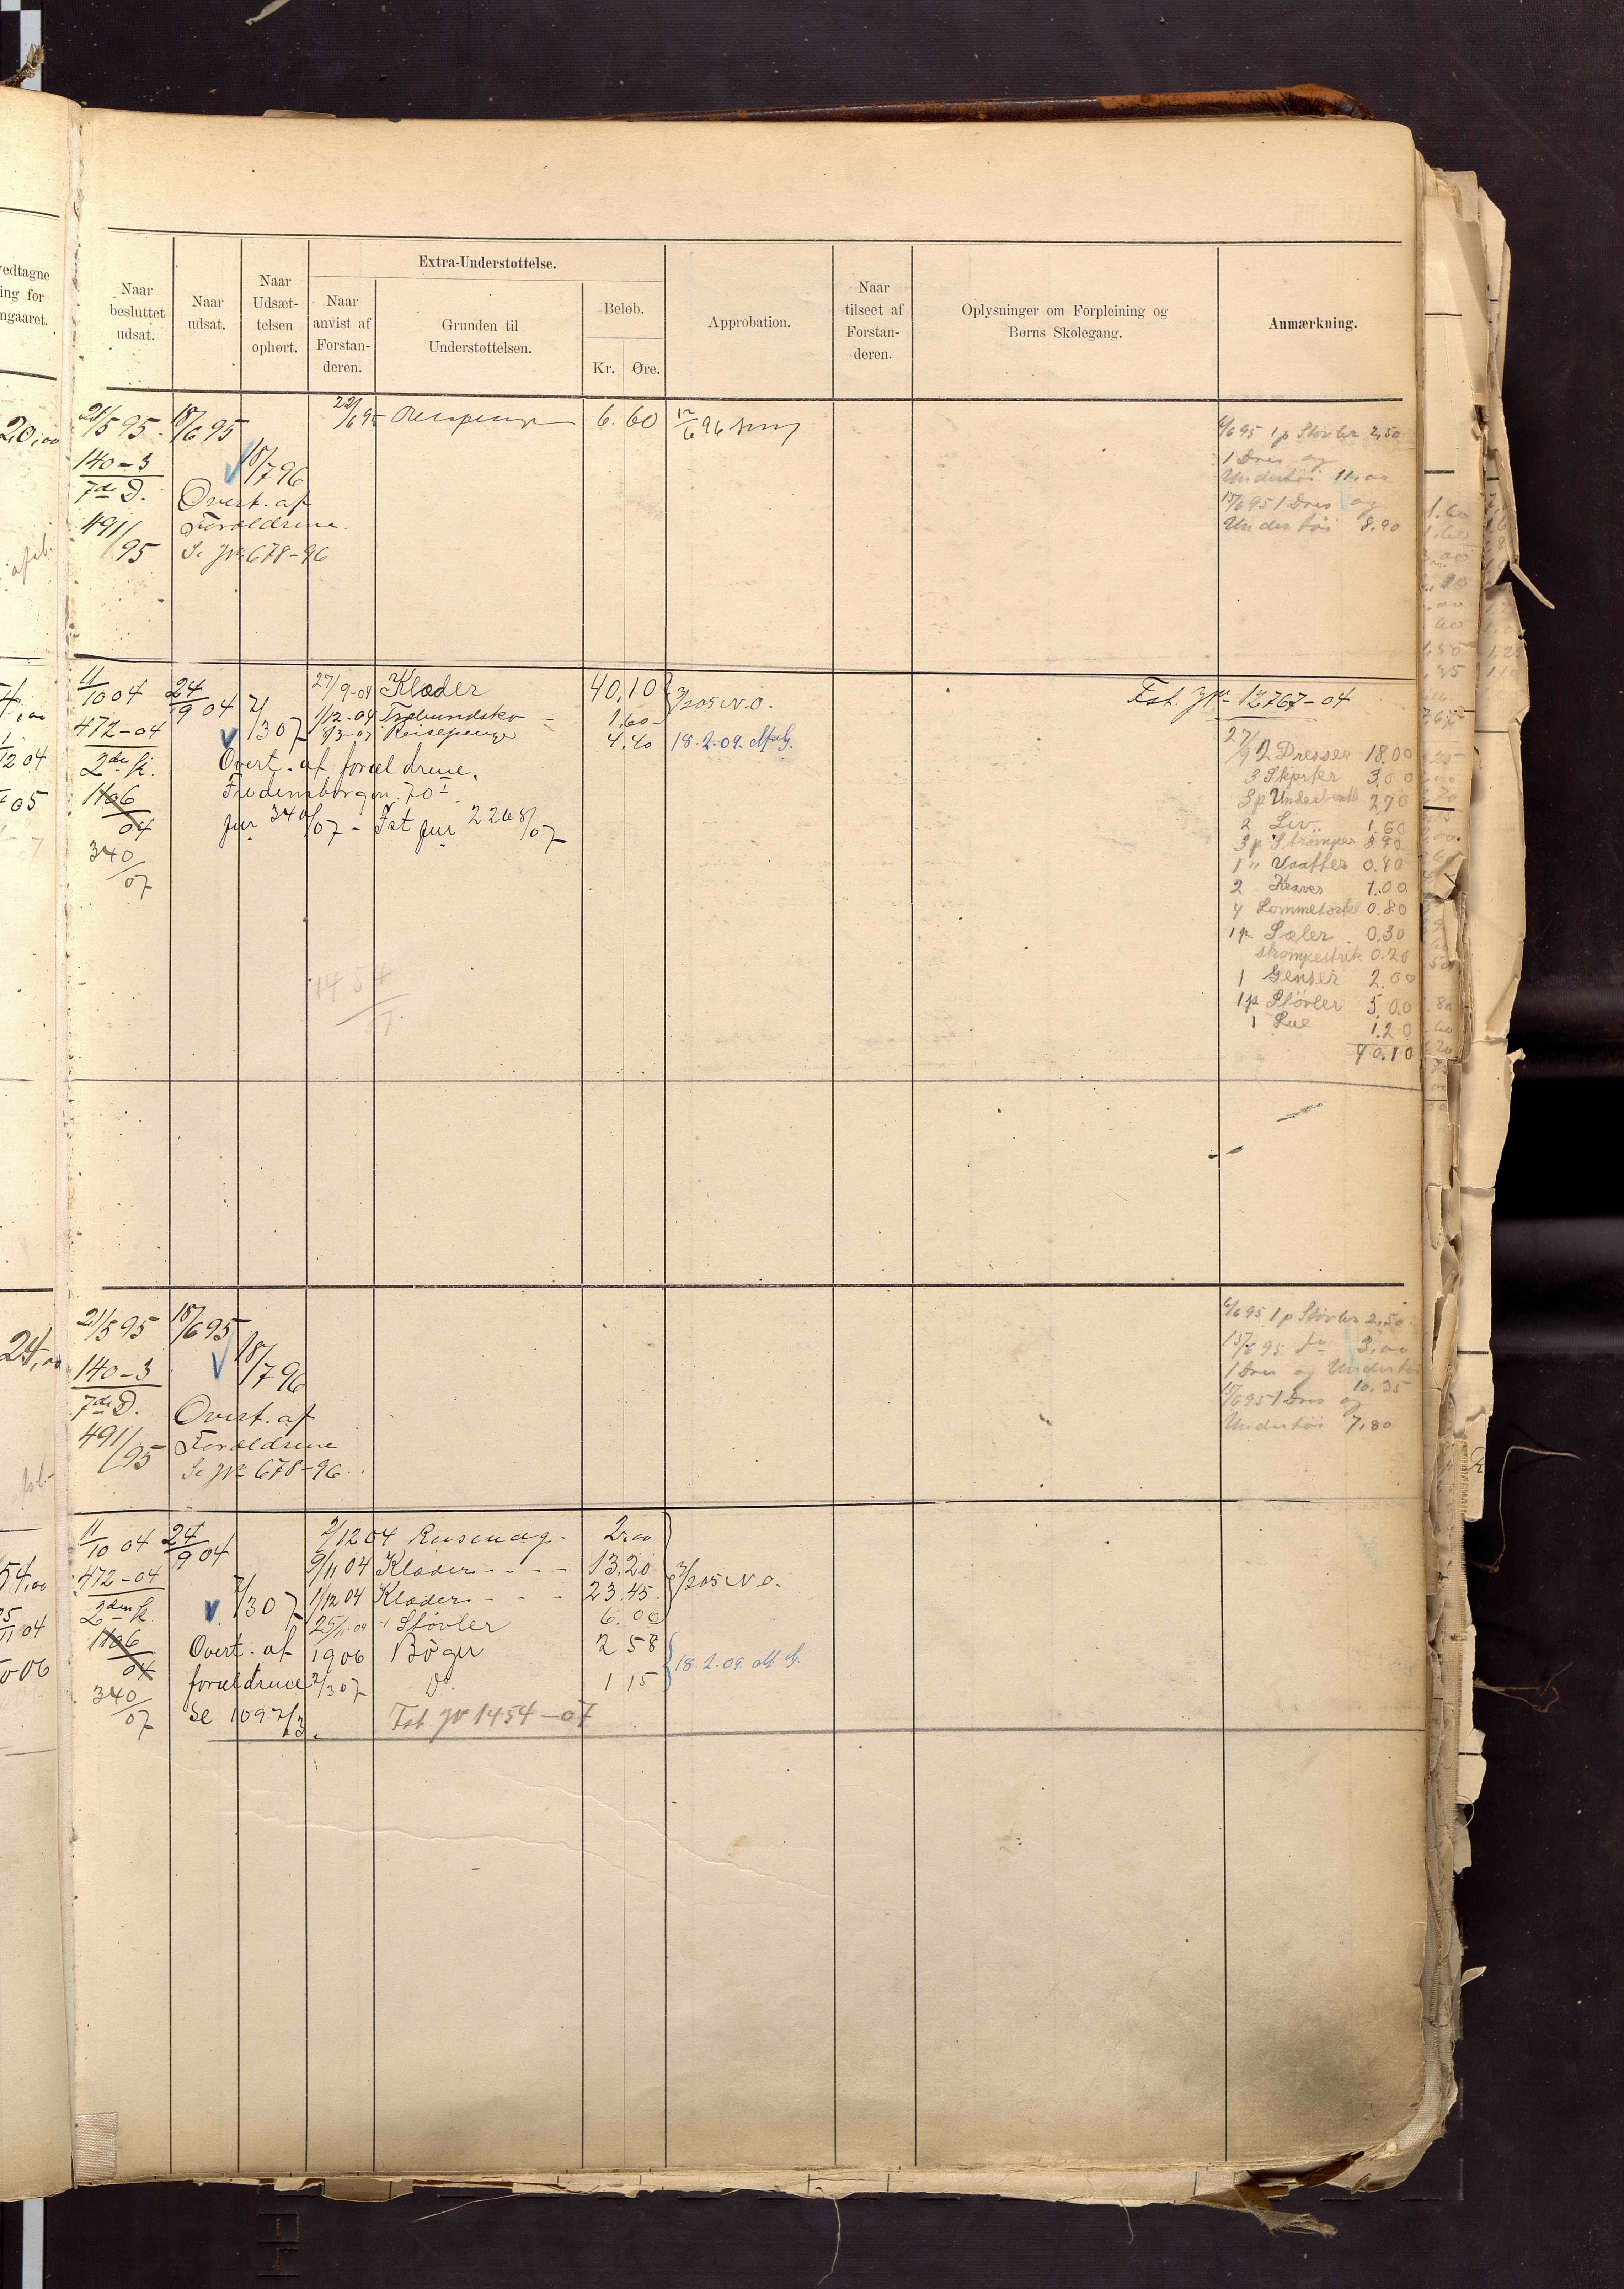 vedtagne
ing for
ngaaret.
Naar besluttet udsat.
Naar udsat.
Naar Udsæt-telsen ophørt.
Extra-Understøttelse.
Naar anvist af Forstan-deren.
Grunden til Understøttelsen.
Beløb.
Kr. Øre.
Approbation.
Naar tilseet af Forstan-deren.
Oplysninger om Forpleining og Børns Skolegang.
Anmærkning.
20,00
21/5 95. 18/6 95 22/6 95 6. 60 12/6 96
140-3 18/7 96
7de D. Overt. af
491/95 Forældrene.
Se Jr 678-96
6/6 95 1 p Støvler 2,50
1 Dres og
Undertøi 11,00
15/6 95 1 Dres og
Undertøi 8.90
11/10 04 24/9 04 27/9-04 Klæder 40,10 3/2 05 N.O.
472-04 2/3 07 1/12-04 Træbundsko - 1,60 -
8/3-07 Reisepenger 4,40 18.2.09.
2den K. Overt. af forældrene.
1106/04 Fredensborgvn. 70 I
jnr 340/07 - Fst jnr 2268/07
340/07
Fst. Jr. 12767-04
27/9 2 Dresser 18.00
3 Skjorter 3,00
3 p Underbenkl 2,70
2 Liv 1.60
3 p Strømper 3.90
1 " Vaatter 0.40
2 Kraver 1.00
4 Lommetørkl 0.80
1 p. Sæler 0.30
strømpestrik 0.20
1 Genser 2.00
1 p Støvler 5,00
1 Lue 1.20
40.10
1454/07
24,00
21/5 95 18/6 95
140-3 18/7 96
7de D. Overt. af
491/95 Forældrene
Se Jr 678-96
6/6 95 1 p Støvler 2,50
15/6 95 do 3,00
1 Dres og Undertøi
10,35
15/6 95 1 Dres og
Undertøi 7,80
54,00
11/10 04 24/9 04 2/12 04 2,00
472-04 9/11 04 Klæder - - - - 13,20 3/2 05 N.O.
2den K. 2/3 07 1/12 04 Klæder - - - 23,45
25/11-04 1 Støvler 6,00
1106/04 Overt. af 1906 Bøger 2 58 18.2.09.
forældrene 2/3 07 Do. 1 15
340/07 Se 1092/13. Fst Jr 1454-07